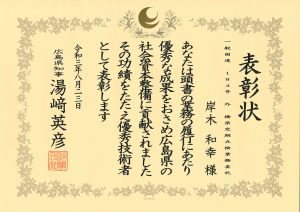 表彰状
一般国道 184号 外 橋梁定期点検業務委託
岸木 和幸 様
あなたは頭書の業務の履行にあたり
優秀な成果をおさめ広島県の
社会資本整備に貢献されました
その功績をたたえ優秀技術者
として表彰します
令和三年八月二三日
広島県知事
湯﨑 英彦